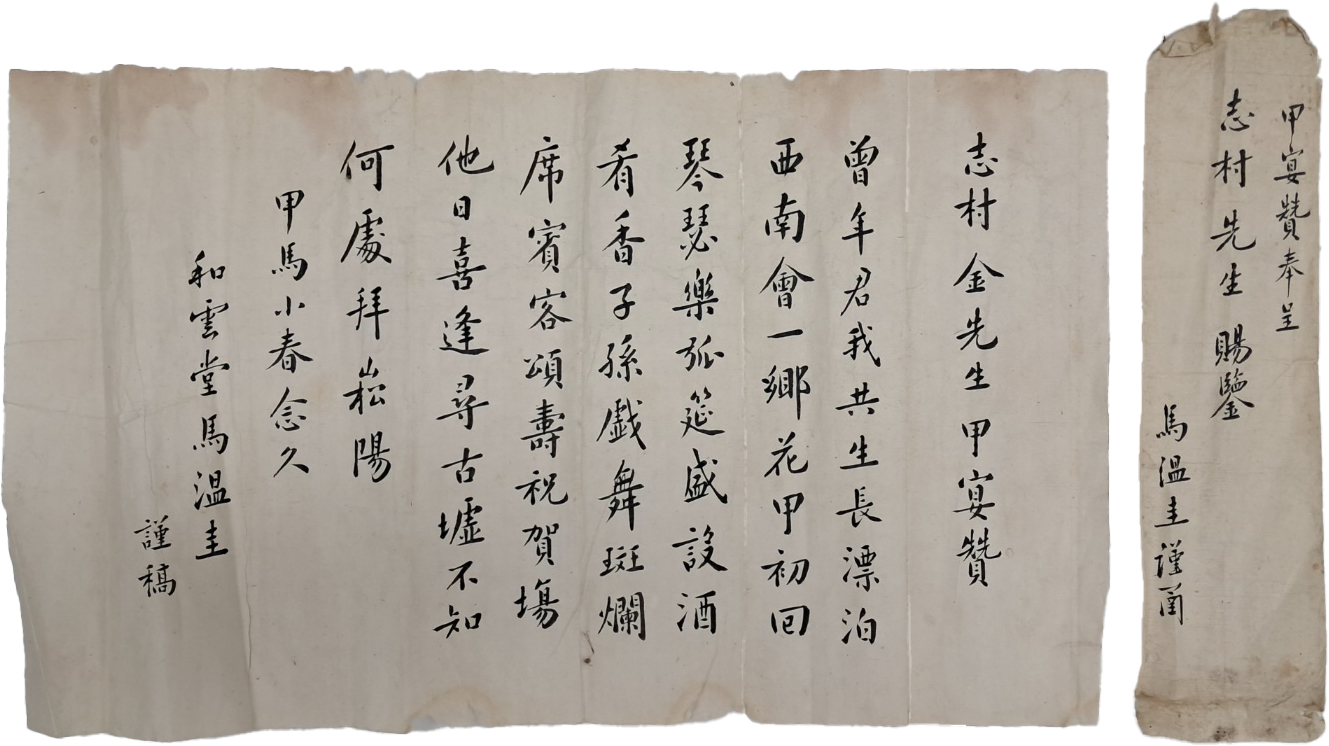 志村金先生甲宴贊
曾年君我共生長漂泊
西南會一鄉花甲初回
琴瑟樂弧筵盛設酒
肴香子孫戯舞斑爛
席賓客頌壽祝賀塲
他日喜逢尋古墟不知
何處拜崧陽
甲馬小春念久
和雲堂馬温圭
謹稿
甲宴贊奉呈
志村先生賜鑒
馬温圭謹函